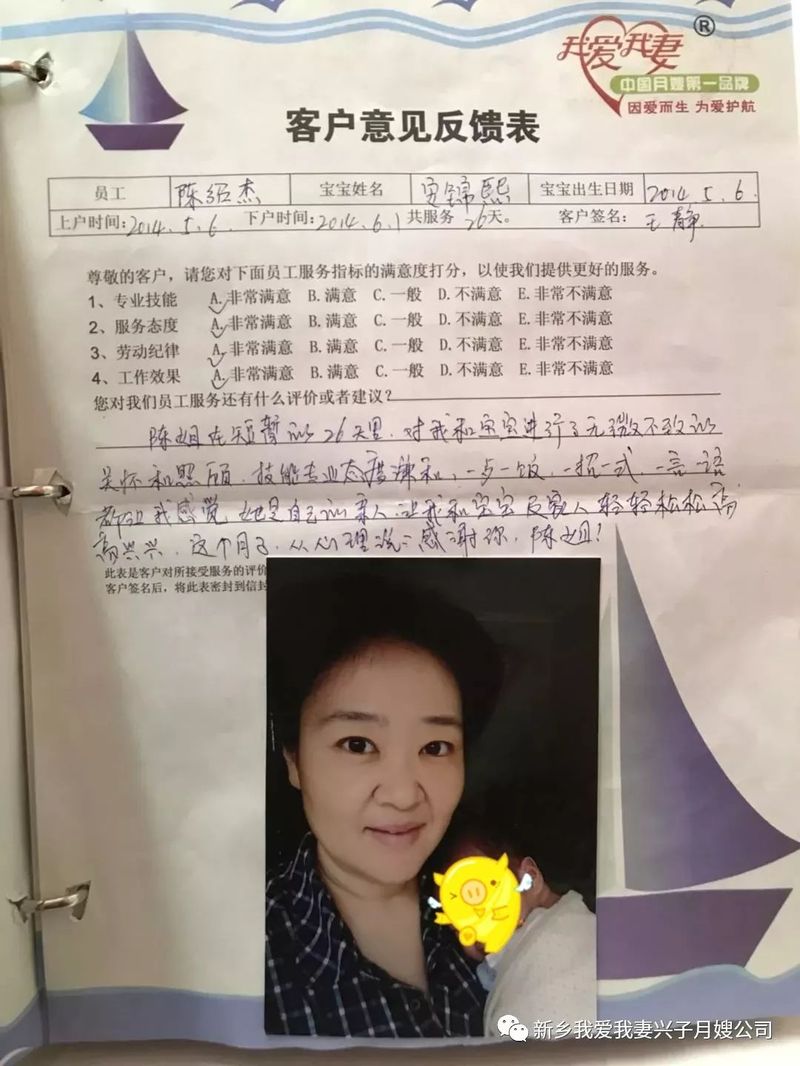 我爱我妻®
中国月嫂第一品牌
因爱而生 为爱护航
客户意见反馈表
员工 陈绍杰 宝宝姓名 锦熙 宝宝出生日期 2014.5.6.
上户时间:2014.5.6. 下户时间:2014.6.1 共服务 26天。 客户签名: 王静
尊敬的客户，请您对下面员工服务指标的满意度打分，以使我们提供更好的服务。
1、专业技能 A.非常满意 B.满意 C.一般 D.不满意 E.非常不满意
2、服务态度 A.非常满意 B.满意 C.一般 D.不满意 E.非常不满意
3、劳动纪律 A.非常满意 B.满意 C.一般 D.不满意 E.非常不满意
4、工作效果 A.非常满意 B.满意 C.一般 D.不满意 E.非常不满意
您对我们员工服务还有什么评价或者建议?
陈姐在短暂的26天里，对我和宝宝进行了无微不致的
关怀和照顾，技能专业态度谦和，一步一饭，一招一式，一言一语
都让我感觉她是自己的亲人让我和宝宝及家人轻轻松松高
高兴兴，这个月子，从心理说:感谢你，陈姐!
此表是客户对所接受服务的评价
客户签名后，将此表密封到信封
新乡我爱我妻兴子月嫂公司